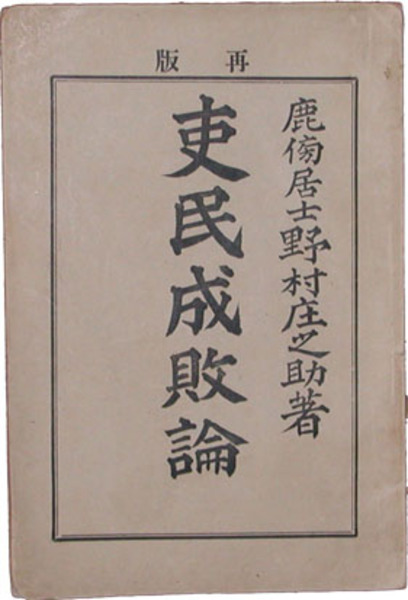 再版
鹿傍居士野村庄之助著
吏民成敗論